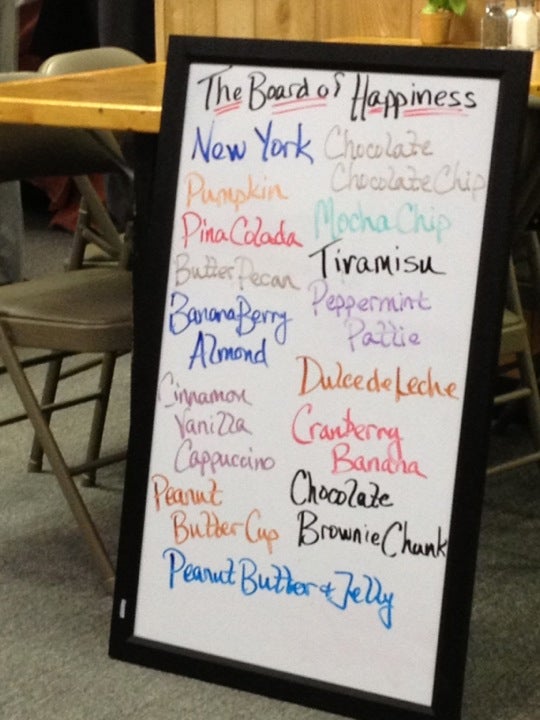 The Board of Happiness
New York
Pumpkin
Pina Colada
Butter Pecan
Banana Berry
Almond
Cinnamon
Vanilla
Cappuccino
Peanut
Butter Cup
Chocolate
Chocolate Chip
Mocha Chip
Tiramisu
Peppermint
Pattie
Dulce de Leche
Cranberry
Banana
Chocolate
Brownie Chunk
Peanut Butter & Jelly